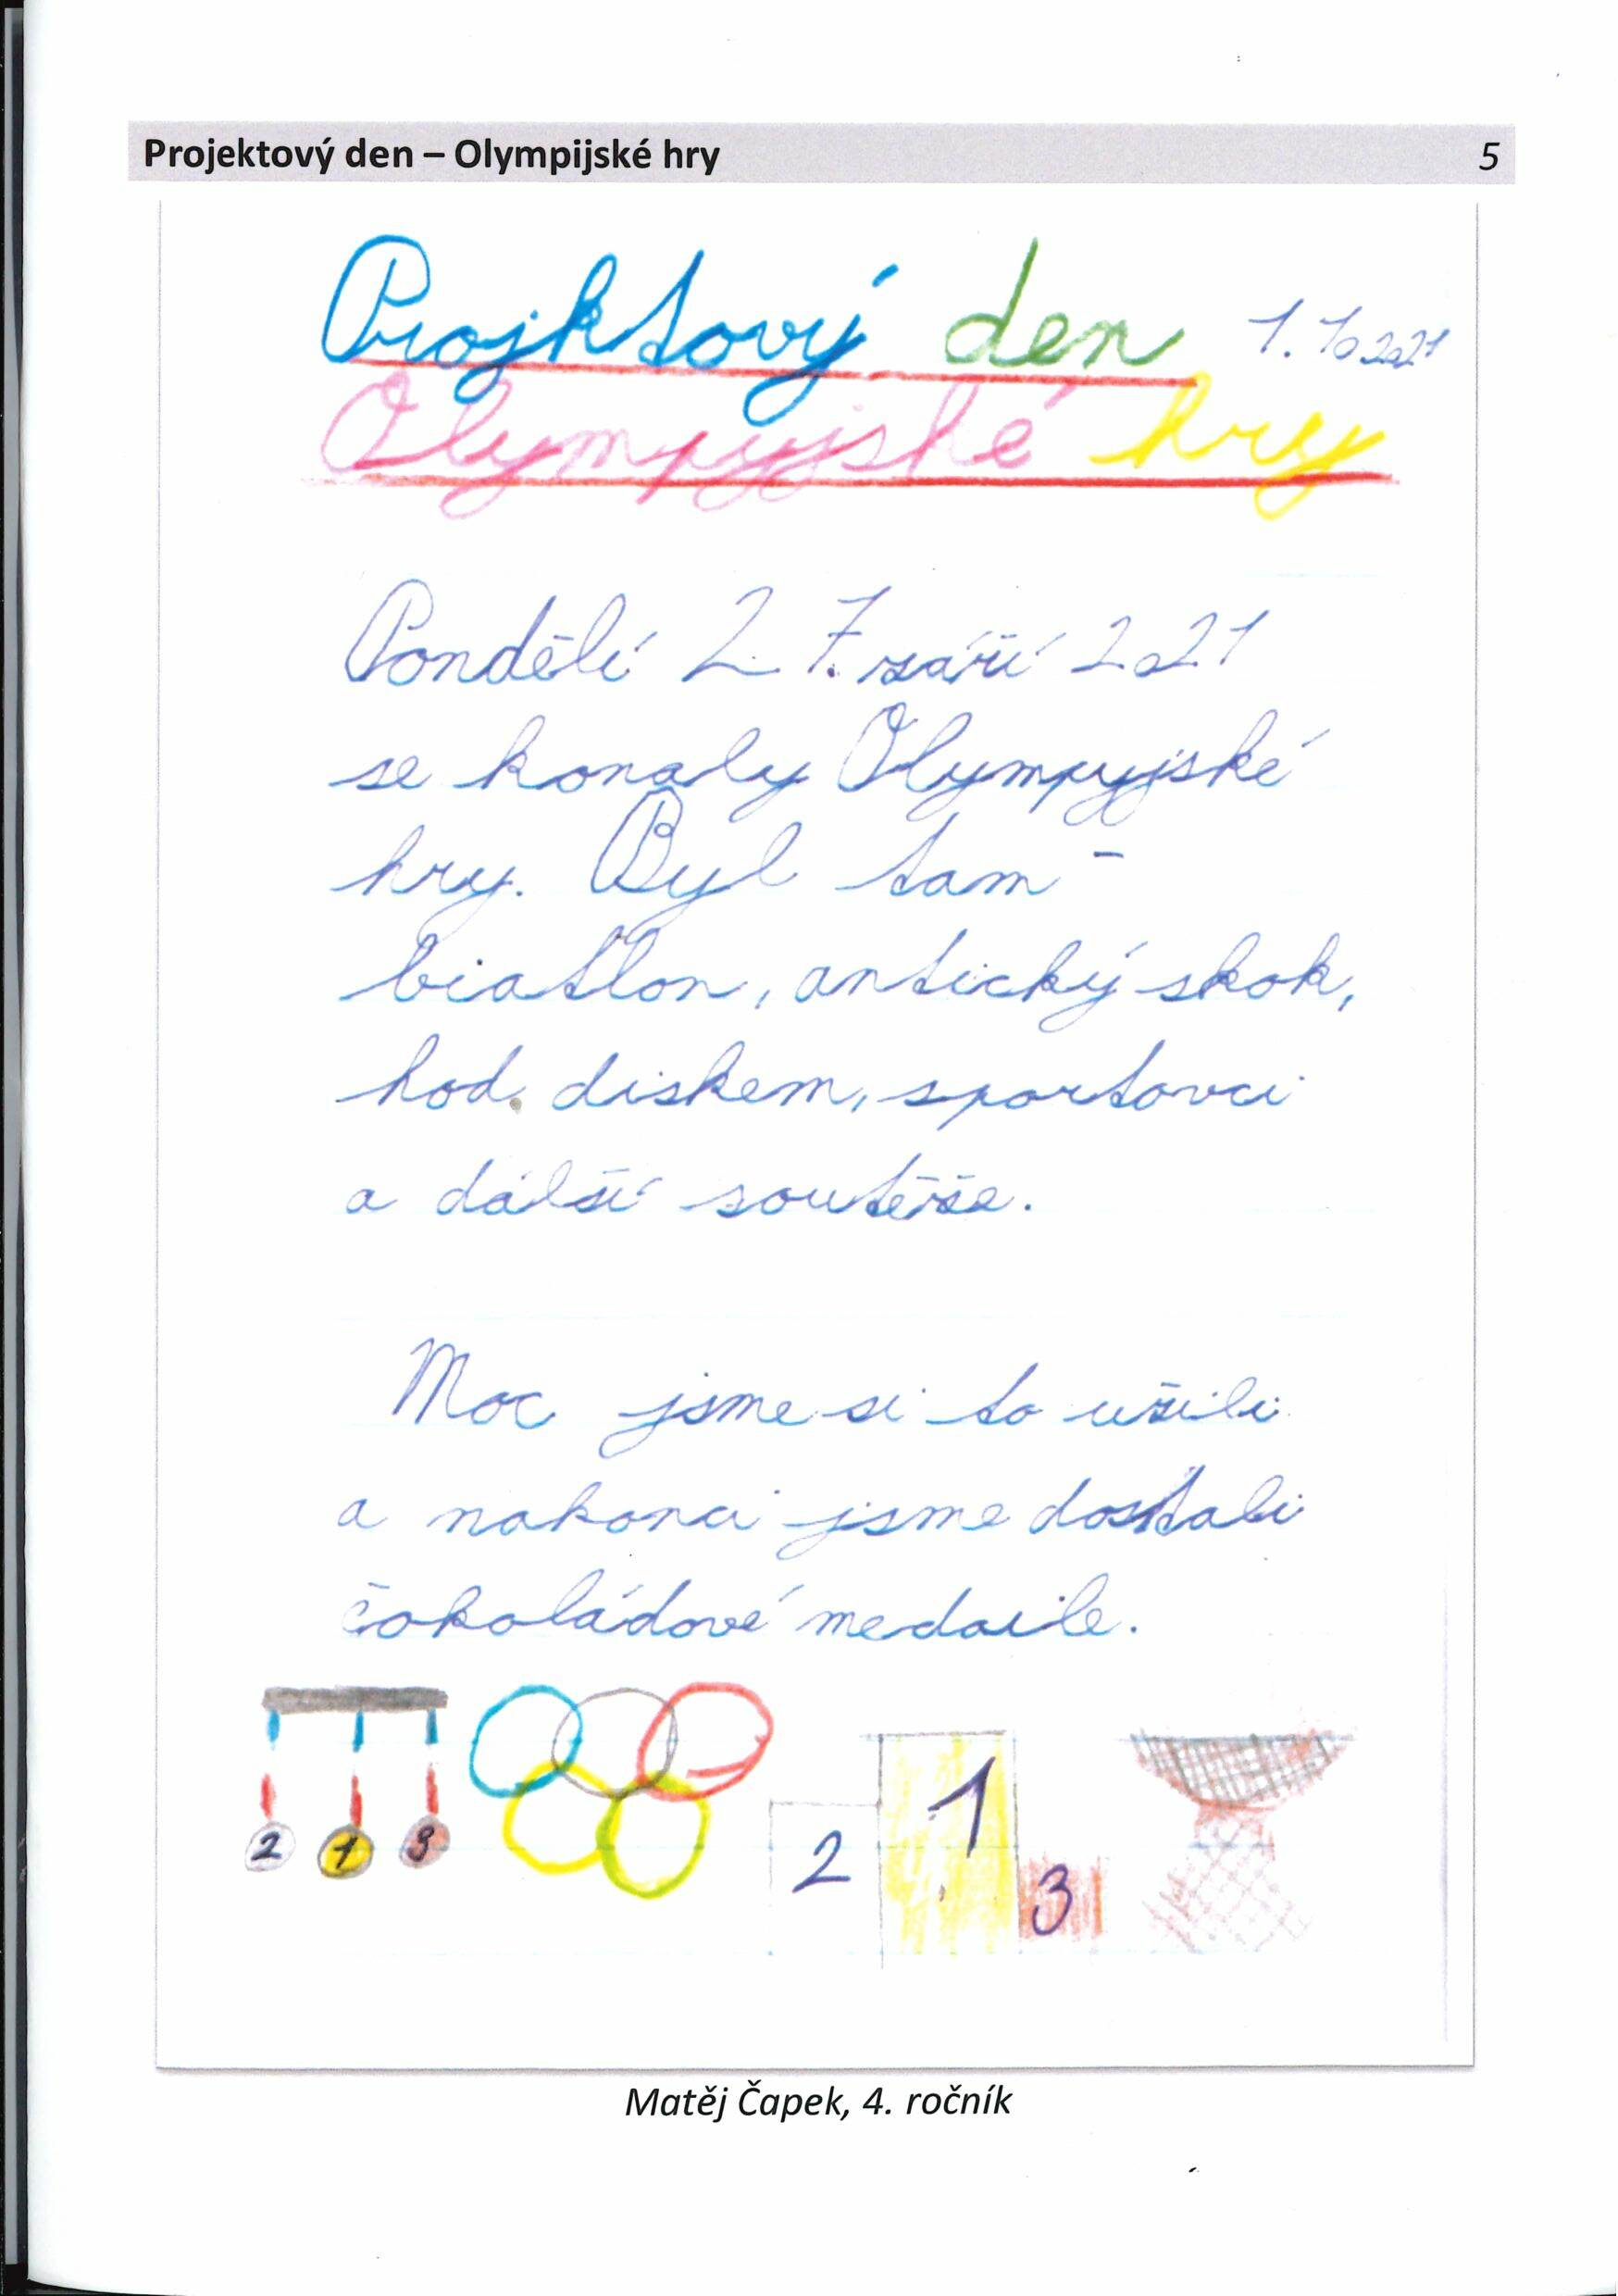 Projektový den – Olympijské hry 5
Projktový den 1. 10 2021
Olympyjské hry
Pondělí 27. září 2021
se konaly Olympyjské
hry. Byl tam -
biatlon, antický skok,
hod diskem, sportovci
a dálší soutěže.
Moc jsme si to užili
a nakonci jsme dostali
čokoládové medaile.
2 1 3
2 1 3
Matěj Čapek, 4. ročník